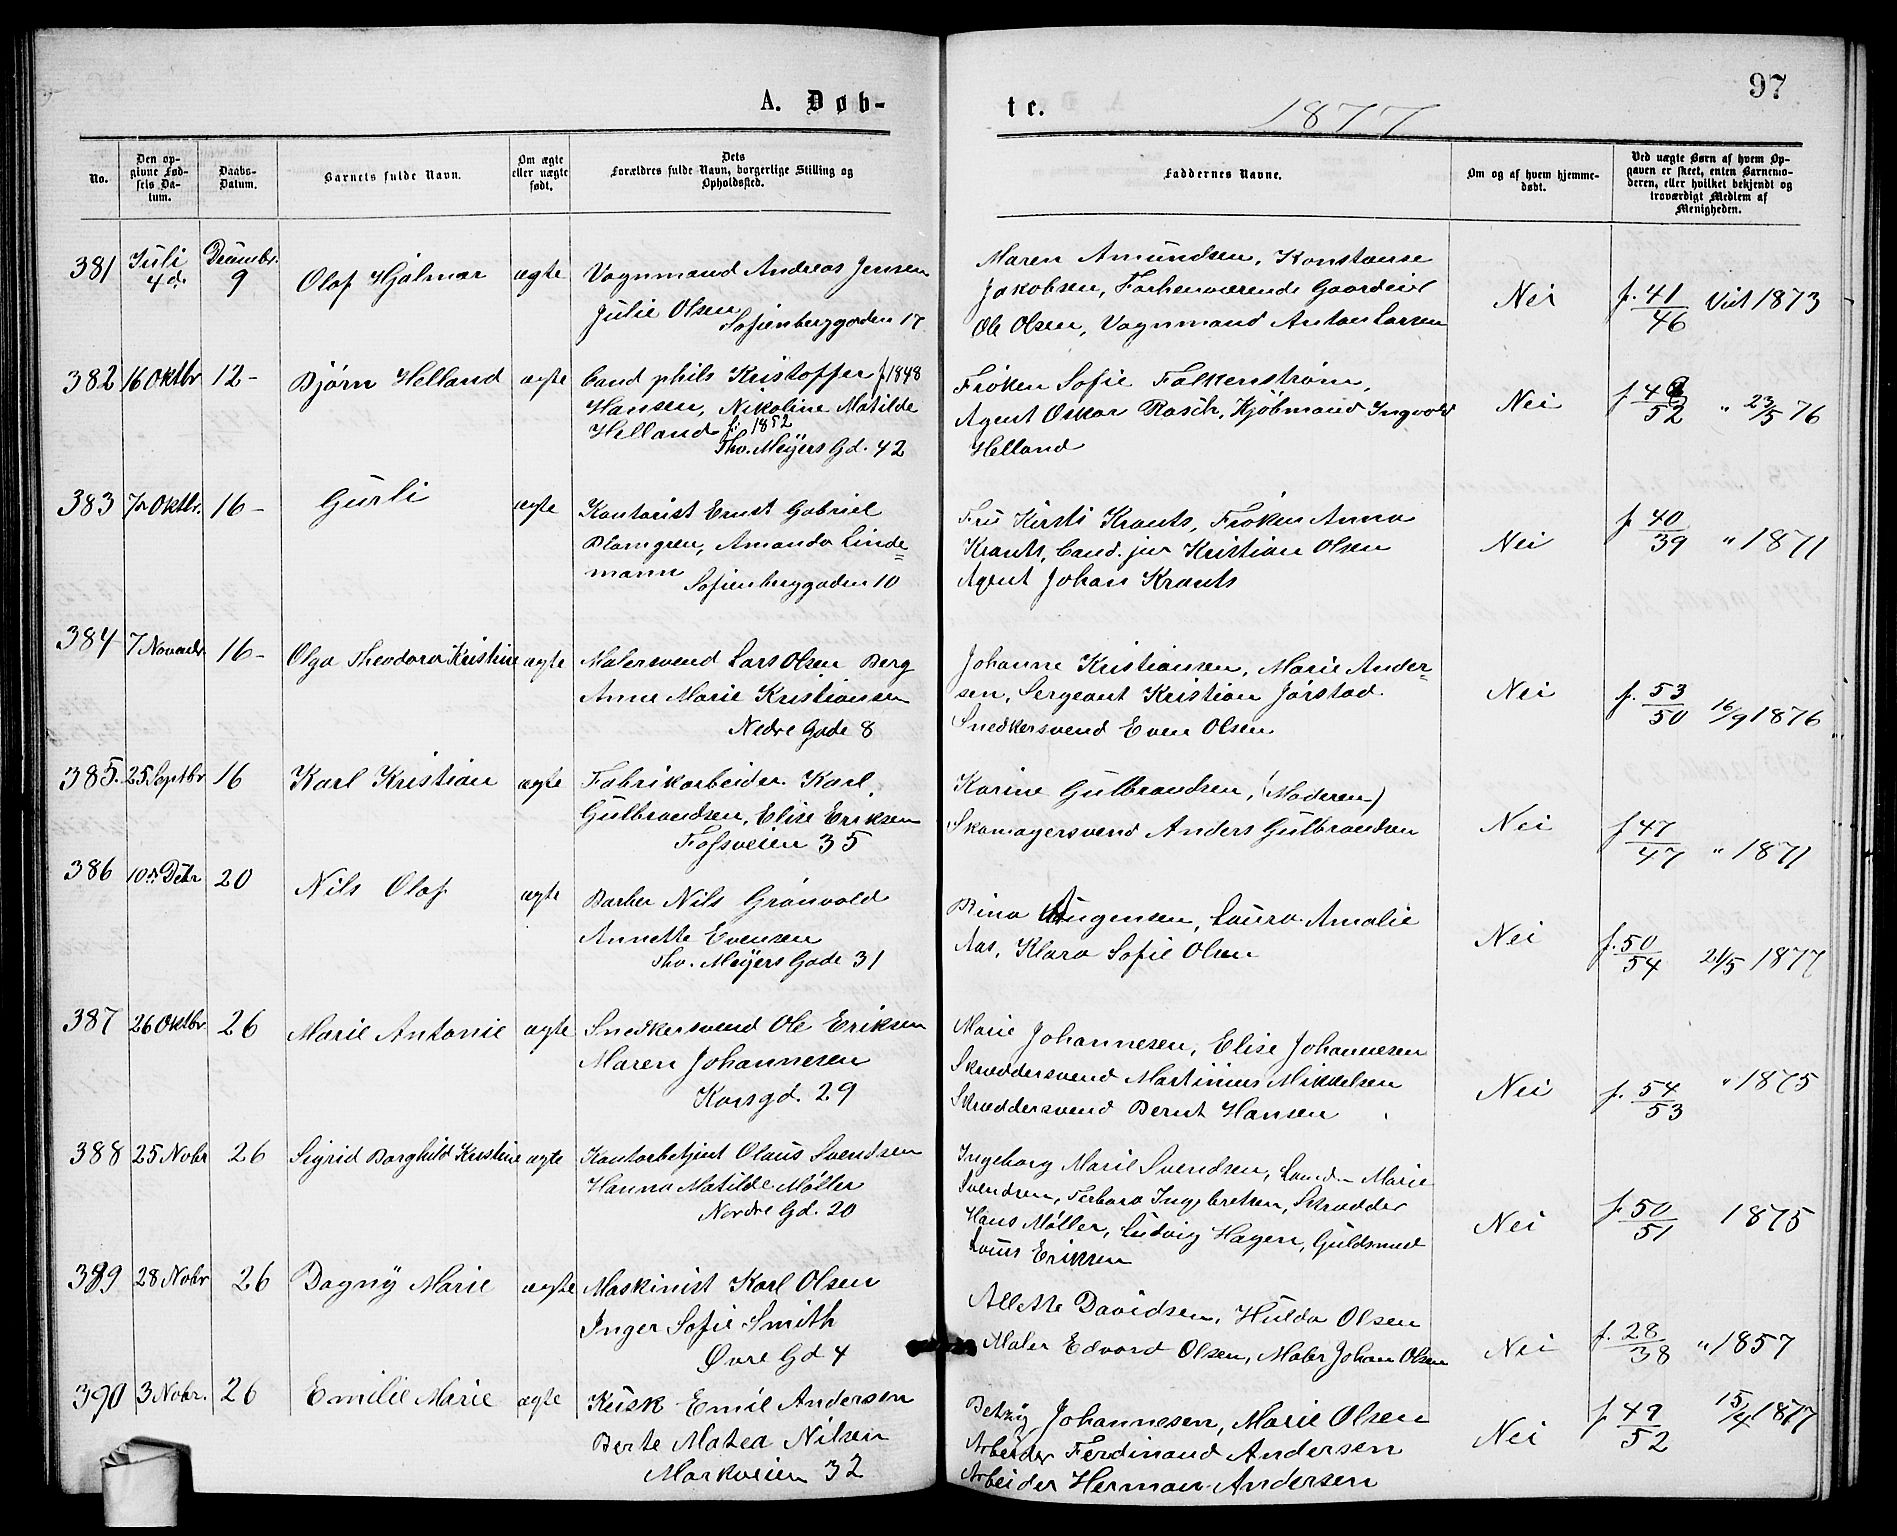 97
A. Døb-
te.
1877
No.
Den op-
givne Fød-
sels Da-
tum.
Daabs-
Datum.
Barnets fulde Navn.
Om ægte
eller uægte
født.
Dets
Forældres fulde Navn, borgerlige Stilling og
Opholdssted.
Faddernes Navne.
Om og af hvem hjemme-
døbt.
Ved uægte Børn af hvem Op-
gaven er skeet, enten Barnemo-
deren, eller hvilket bekjendt og
troværdigt Medlem af
Menigheden.
381 Juli 4de Decembr. 9 Olaf Hjalmar ægte
Vognmand Andreas Jensen
Julie Olsen
Sofienberggaden 17
Maren Amundsen, Konstanse
Jakobsen, Forhenværende Gaardeier
Ole Olsen, Vognmand Anton Larsen
Nei
f. 41/46 Viet 1873
382 16 Oktbr 12 - Bjørn Helland ægte
Cand phils Kristoffer f 1848
Hansen, Nikoline Matilde
Helland f. 1852
Thv. Meyers Gd. 42
Frøken Sofie Falkenstrøm,
Agent Oskar Rasch, Kjøbmand Ingvald
Helland
Nei
f 48/52 " 23/5 76
383 7de Oktbr. 16 - Gurli ægte
Kontorist Ernst Gabriel
Blomgren, Amanda Linde=
mann
Sofienberggaden 10
Fru Kirsti Krants, Frøken Anna
Krants, Cand. jur Kristian Olsen
Agent Johan Krants
Nei
f 40/39 " 1871
384 7 Novembr 16 - Olga Theodora Kristine ægte
Malersvend Lars Olsen Berg
Anne Marie Kristiansen
Nedre Gade 8
Johanne Kristiansen, Marie Ander=
sen, Sergeant Kristian Jørstad.
Snedkersvend Even Olsen
Nei
f. 53/50 16/9 1876
385. 25 Septbr 16 Karl Kristian ægte
Fabrikarbeider Karl
Gulbrandsen, Elise Eriksen
Fossveien 35
Karine Gulbrandsen, (Moderen)
Skomagersvend Anders Gulbrandsen
Nei
f 47/47 " 1871
386 10de Debr 20 Nils Olaf ægte
Barber Nils Grønvold
Annette Evensen
Thv. Meyers Gade 31
Rina Jørgensen, Laura Amalie
Aas, Klara Sofie Olsen
Nei
f. 50/54 21/5 1877
387 26 Oktbr. 26 Marie Antonie ægte
Snedkersvend Ole Eriksen
Maren Johannesen
Korsgd. 29
Marie Johannesen, Elise Johannesen
Skræddersvend Martinius Mikkelsen
Skræddersvend Bernt Hansen
Nei
f. 54/53 " 1875
388 25 Nobr 26 Sigrid Borghild Kristine ægte
Kontorbetjent Olaus Svendsen
Hanna Matilde Møller
Nordre Gd. 20
Ingeborg Marie Svendsen, Marie
Svendsen, Ingebretsen, Skrædder
Hans Møller, Ludvig Hagen, Guldsmed
Louis Eriksen
Nei
f. 50/51 1875
389 28 Nobr 26 Dagny Marie ægte
Maskinist Karl Olsen
Inger Sofie Smith
Øvre Gd 4
Allette Davidsen, Hulda Olsen
Maler Edvard Olsen, Maler Johan Olsen
Nei
f. 28/38 " 1857
390 3 Nobr. 26 Emilie Marie ægte
Kusk Emil Andersen
Berte Matea Nilsen
Markveien 32
Betzy Johannesen, Marie Olsen
Arbeider Ferdinand Andersen
Arbeider Herman Andersen
Nei
f 49/52 15/4 1877